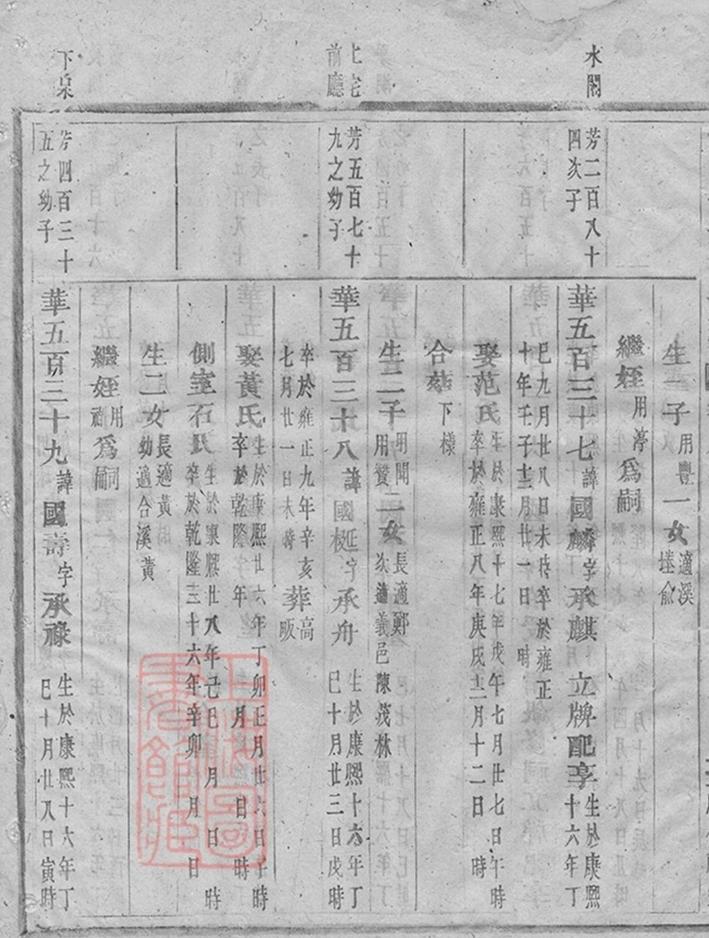 水閣
上宅前廳
下宋
芳二百八十四次子
芳五百七十九之幼子
芳四百三十五之幼子
生一子用豐一女適溪墘俞
繼姪用淳為嗣
華五百三十七諱國麟字承麒立牌配享生於康熙十六年丁
巳九月廿八日未時卒於雍正
十年壬子十二月廿一日 時
娶范氏生於康熙十七年戊午七月廿七日午時卒於雍正八年庚戌十二月十二日 時
合葬下樣
生二子用聞用贊二女長適鄭次適義邑陳茂林
華五百三十八諱國梃字承舟生於康熙十六年丁巳十月廿三日戌時
卒於雍正九年辛亥七月廿一日未時葬高畈
娶黃氏生於康熙廿六年丁卯正月廿六日午時卒於乾隆 年 月 日 時
側室石氏生於康熙廿八年己巳 月 日 時卒於乾隆三十六年辛卯 月 日
生二女長適黃 幼適合溪黃
繼姪用 為嗣
華五百三十九諱國壽字承祿生於康熙十六年丁巳十月廿八日寅時
上海圖書館藏